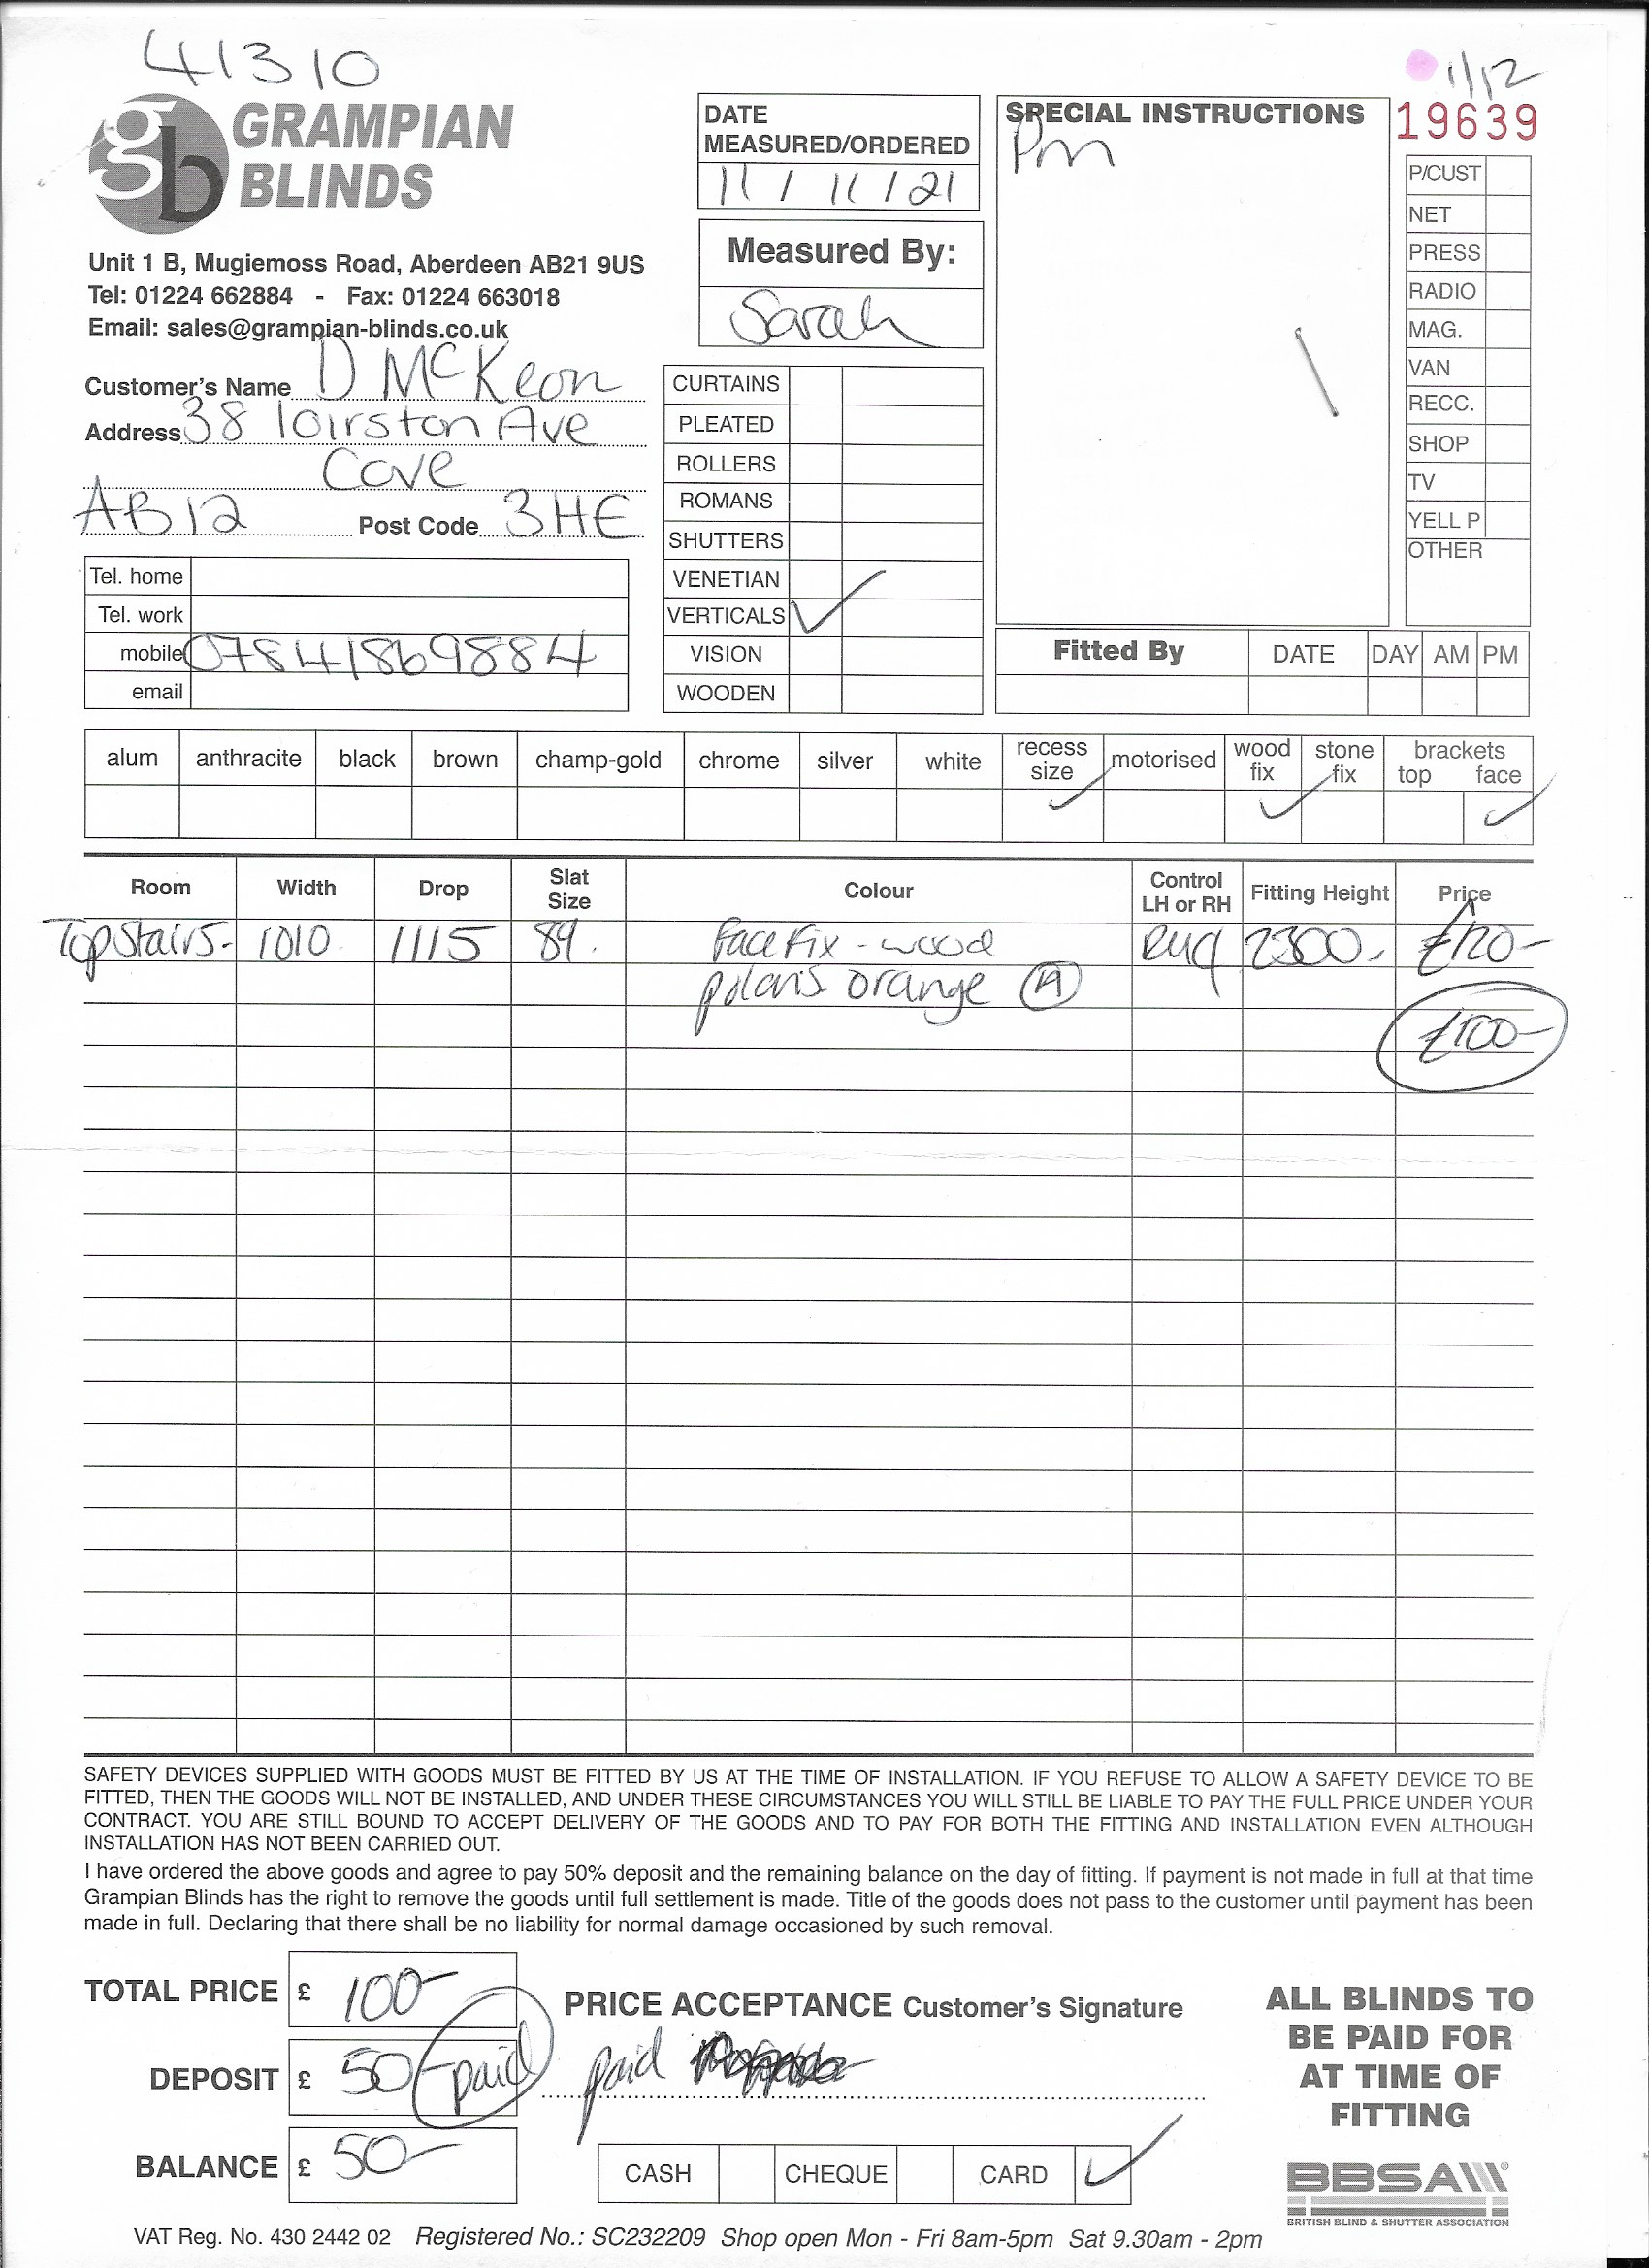 41310
1/12
GRAMPIAN
BLINDS
Unit 1 B, Mugiemoss Road, Aberdeen AB21 9US
Tel: 01224 662884 - Fax: 01224 663018
Email: sales@grampian-blinds.co.uk
Customer's Name D McKeon
Address 38 loirston Ave
Cove
AB12 Post Code 3HE
Tel. home
Tel. work
mobile 07841869884
email
DATE
MEASURED/ORDERED
11/11/21
Measured By:
Sarah
CURTAINS
PLEATED
ROLLERS
ROMANS
SHUTTERS
VENETIAN
VERTICALS ✓
VISION
WOODEN
SPECIAL INSTRUCTIONS
Pm
19639
P/CUST
NET
PRESS
RADIO
MAG.
VAN
RECC.
SHOP
TV
YELL P
OTHER
Fitted By DATE DAY AM PM
alum anthracite black brown champ-gold chrome silver white recess size motorised wood fix stone fix brackets top face
✓ ✓ ✓
Room Width Drop Slat Size Colour Control LH or RH Fitting Height Price
Top Stairs. 1010 1115 89. face fix - wood 2300. £120-
polaris orange (A)
£100-
SAFETY DEVICES SUPPLIED WITH GOODS MUST BE FITTED BY US AT THE TIME OF INSTALLATION. IF YOU REFUSE TO ALLOW A SAFETY DEVICE TO BE
FITTED, THEN THE GOODS WILL NOT BE INSTALLED, AND UNDER THESE CIRCUMSTANCES YOU WILL STILL BE LIABLE TO PAY THE FULL PRICE UNDER YOUR
CONTRACT. YOU ARE STILL BOUND TO ACCEPT DELIVERY OF THE GOODS AND TO PAY FOR BOTH THE FITTING AND INSTALLATION EVEN ALTHOUGH
INSTALLATION HAS NOT BEEN CARRIED OUT.
I have ordered the above goods and agree to pay 50% deposit and the remaining balance on the day of fitting. If payment is not made in full at that time
Grampian Blinds has the right to remove the goods until full settlement is made. Title of the goods does not pass to the customer until payment has been
made in full. Declaring that there shall be no liability for normal damage occasioned by such removal.
TOTAL PRICE £ 100-
DEPOSIT £ 50- paid
BALANCE £ 50-
PRICE ACCEPTANCE Customer's Signature
paid
CASH CHEQUE CARD ✓
ALL BLINDS TO
BE PAID FOR
AT TIME OF
FITTING
BBSA
BRITISH BLIND & SHUTTER ASSOCIATION
VAT Reg. No. 430 2442 02 Registered No.: SC232209 Shop open Mon - Fri 8am-5pm Sat 9.30am - 2pm